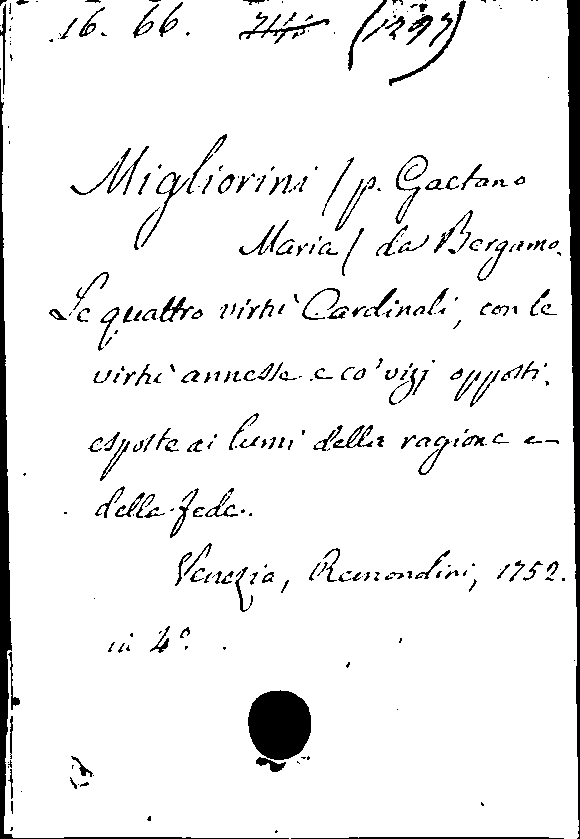 16. 66. (1297)
Migliorini / p. Gaetano
Maria / da Bergamo.
Le quattro virtù Cardinali, con le
virtù annesse e co' vizj opposti.
esposte ai lumi della ragione e
della fede.
Venezia, Remondini, 1752.
in 4°.